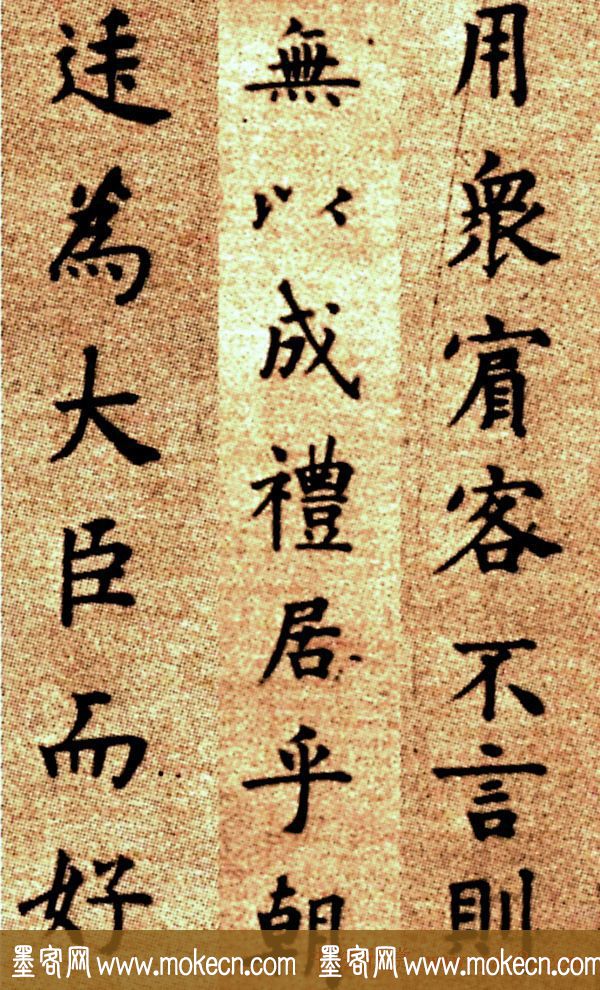 用衆賓客不言則
無以成禮居乎朝
廷為大臣而好
墨客网 www.mokecn.com 墨客网 www.mokecn.com